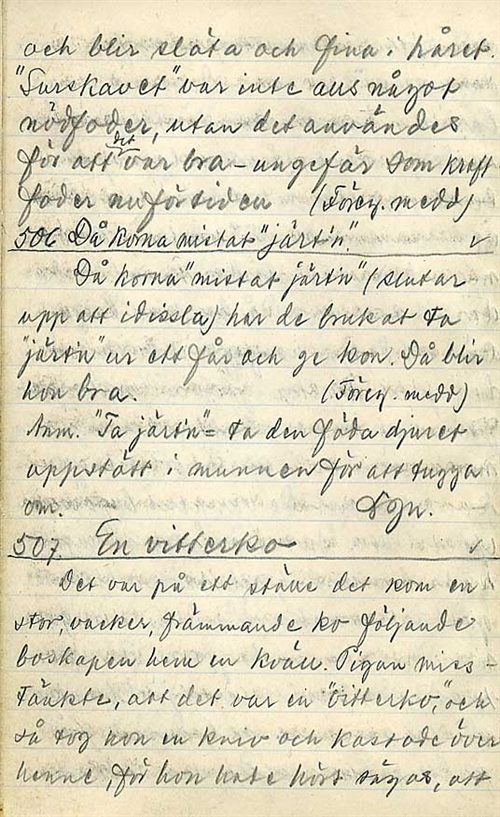 och blir släta och fina i håret.
"Surskavet" var inte ans något
nödfoder, utan det användes
för att det var bra – ungefär som kraft
foder nuförtiden (Föreg. medd)
506 Då korna mistat "järt'n".
Då korna "mistat järt'n" (slutar
upp att idissla) har de brukat ta
"järtn" ur ett får och ge kon. Då blir
hon bra. (Föreg. medd)
Anm. "Ta järt'n" = ta den föda djuret
uppstött i munnen för att tugga
om.
507. En vitterko
Det var på ett ställe det kom en
stor, vacker, främmande ko följande
boskapen hem en kväll. Pigan miss-
tänkte, att det var en "vitterko", och
så tog hon en kniv och kastade över
henne, för hon hade hört sägas, att